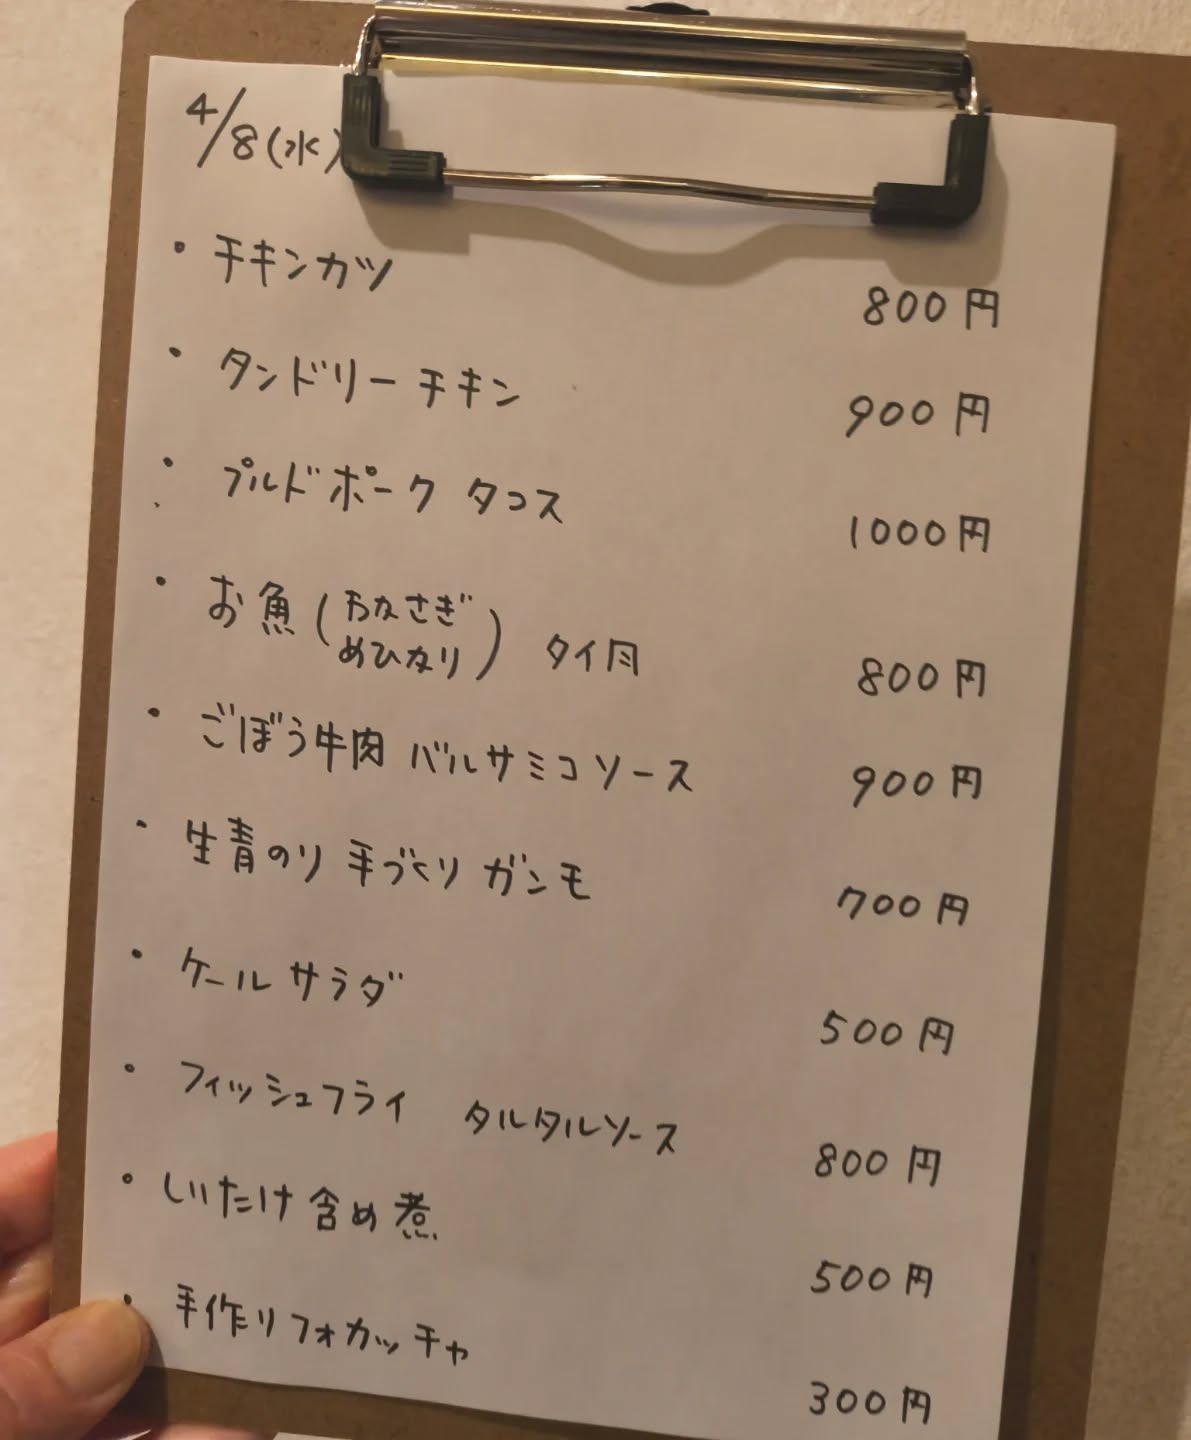 4/8(水)
・チキンカツ 800円
・タンドリーチキン 900円
・プルドポーク タコス 1000円
・お魚(おなさぎ
めひかり) タイ風 800円
・ごぼう牛肉 バルサミコソース 900円
・生青のり 手づくり ガンモ 700円
・ケールサラダ 500円
・フィッシュフライ タルタルソース 800円
・しいたけ含め煮 500円
・手作りフォカッチャ 300円